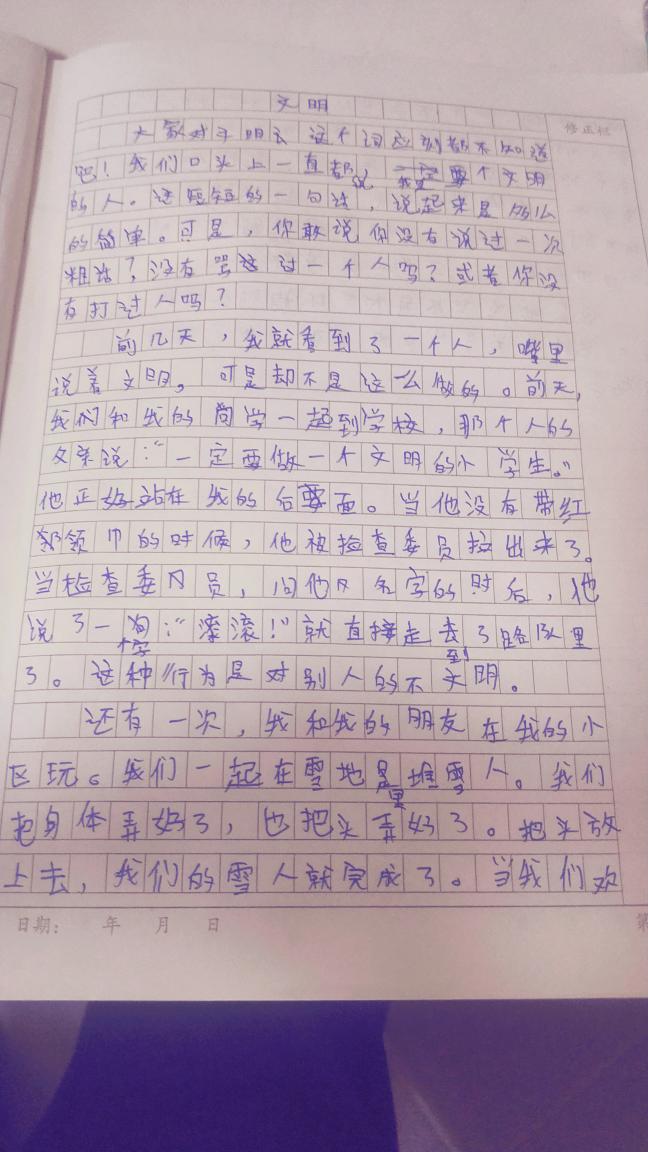 文明
修正栏
大家对于明云这个词应别都不知说
吧！我们口头上一直都说，一定要做个文明
的人。这短短的一句话，说起来是的么
的简单。可是，你敢说你没有说过一次
粗话？没有骂过一个人吗？或者你没
有打过人吗？
前几天，我就看到了一个人，嘴里
说着文明，可是却不是这么做的。前天，
我们和我的同学一起到学校，那个人的
父亲说：“一定要做一个文明的小学生。”
他正好站在我的后面。当他没有带红
领巾的时候，他被检查委员拉出来了。
当检查委员，问他名字的时后，他
说了一句个字：“滚滚！”就直接走去到了路队里
了。这种行为是对别人的不文明。
还有一次，我和我的朋友在我的小
区玩。我们一起在雪地里堆雪人。我们
把身体弄好了，也把头弄好了。把头放
上去，我们的雪人就完成了。当我们欢
日期： 年 月 日
第